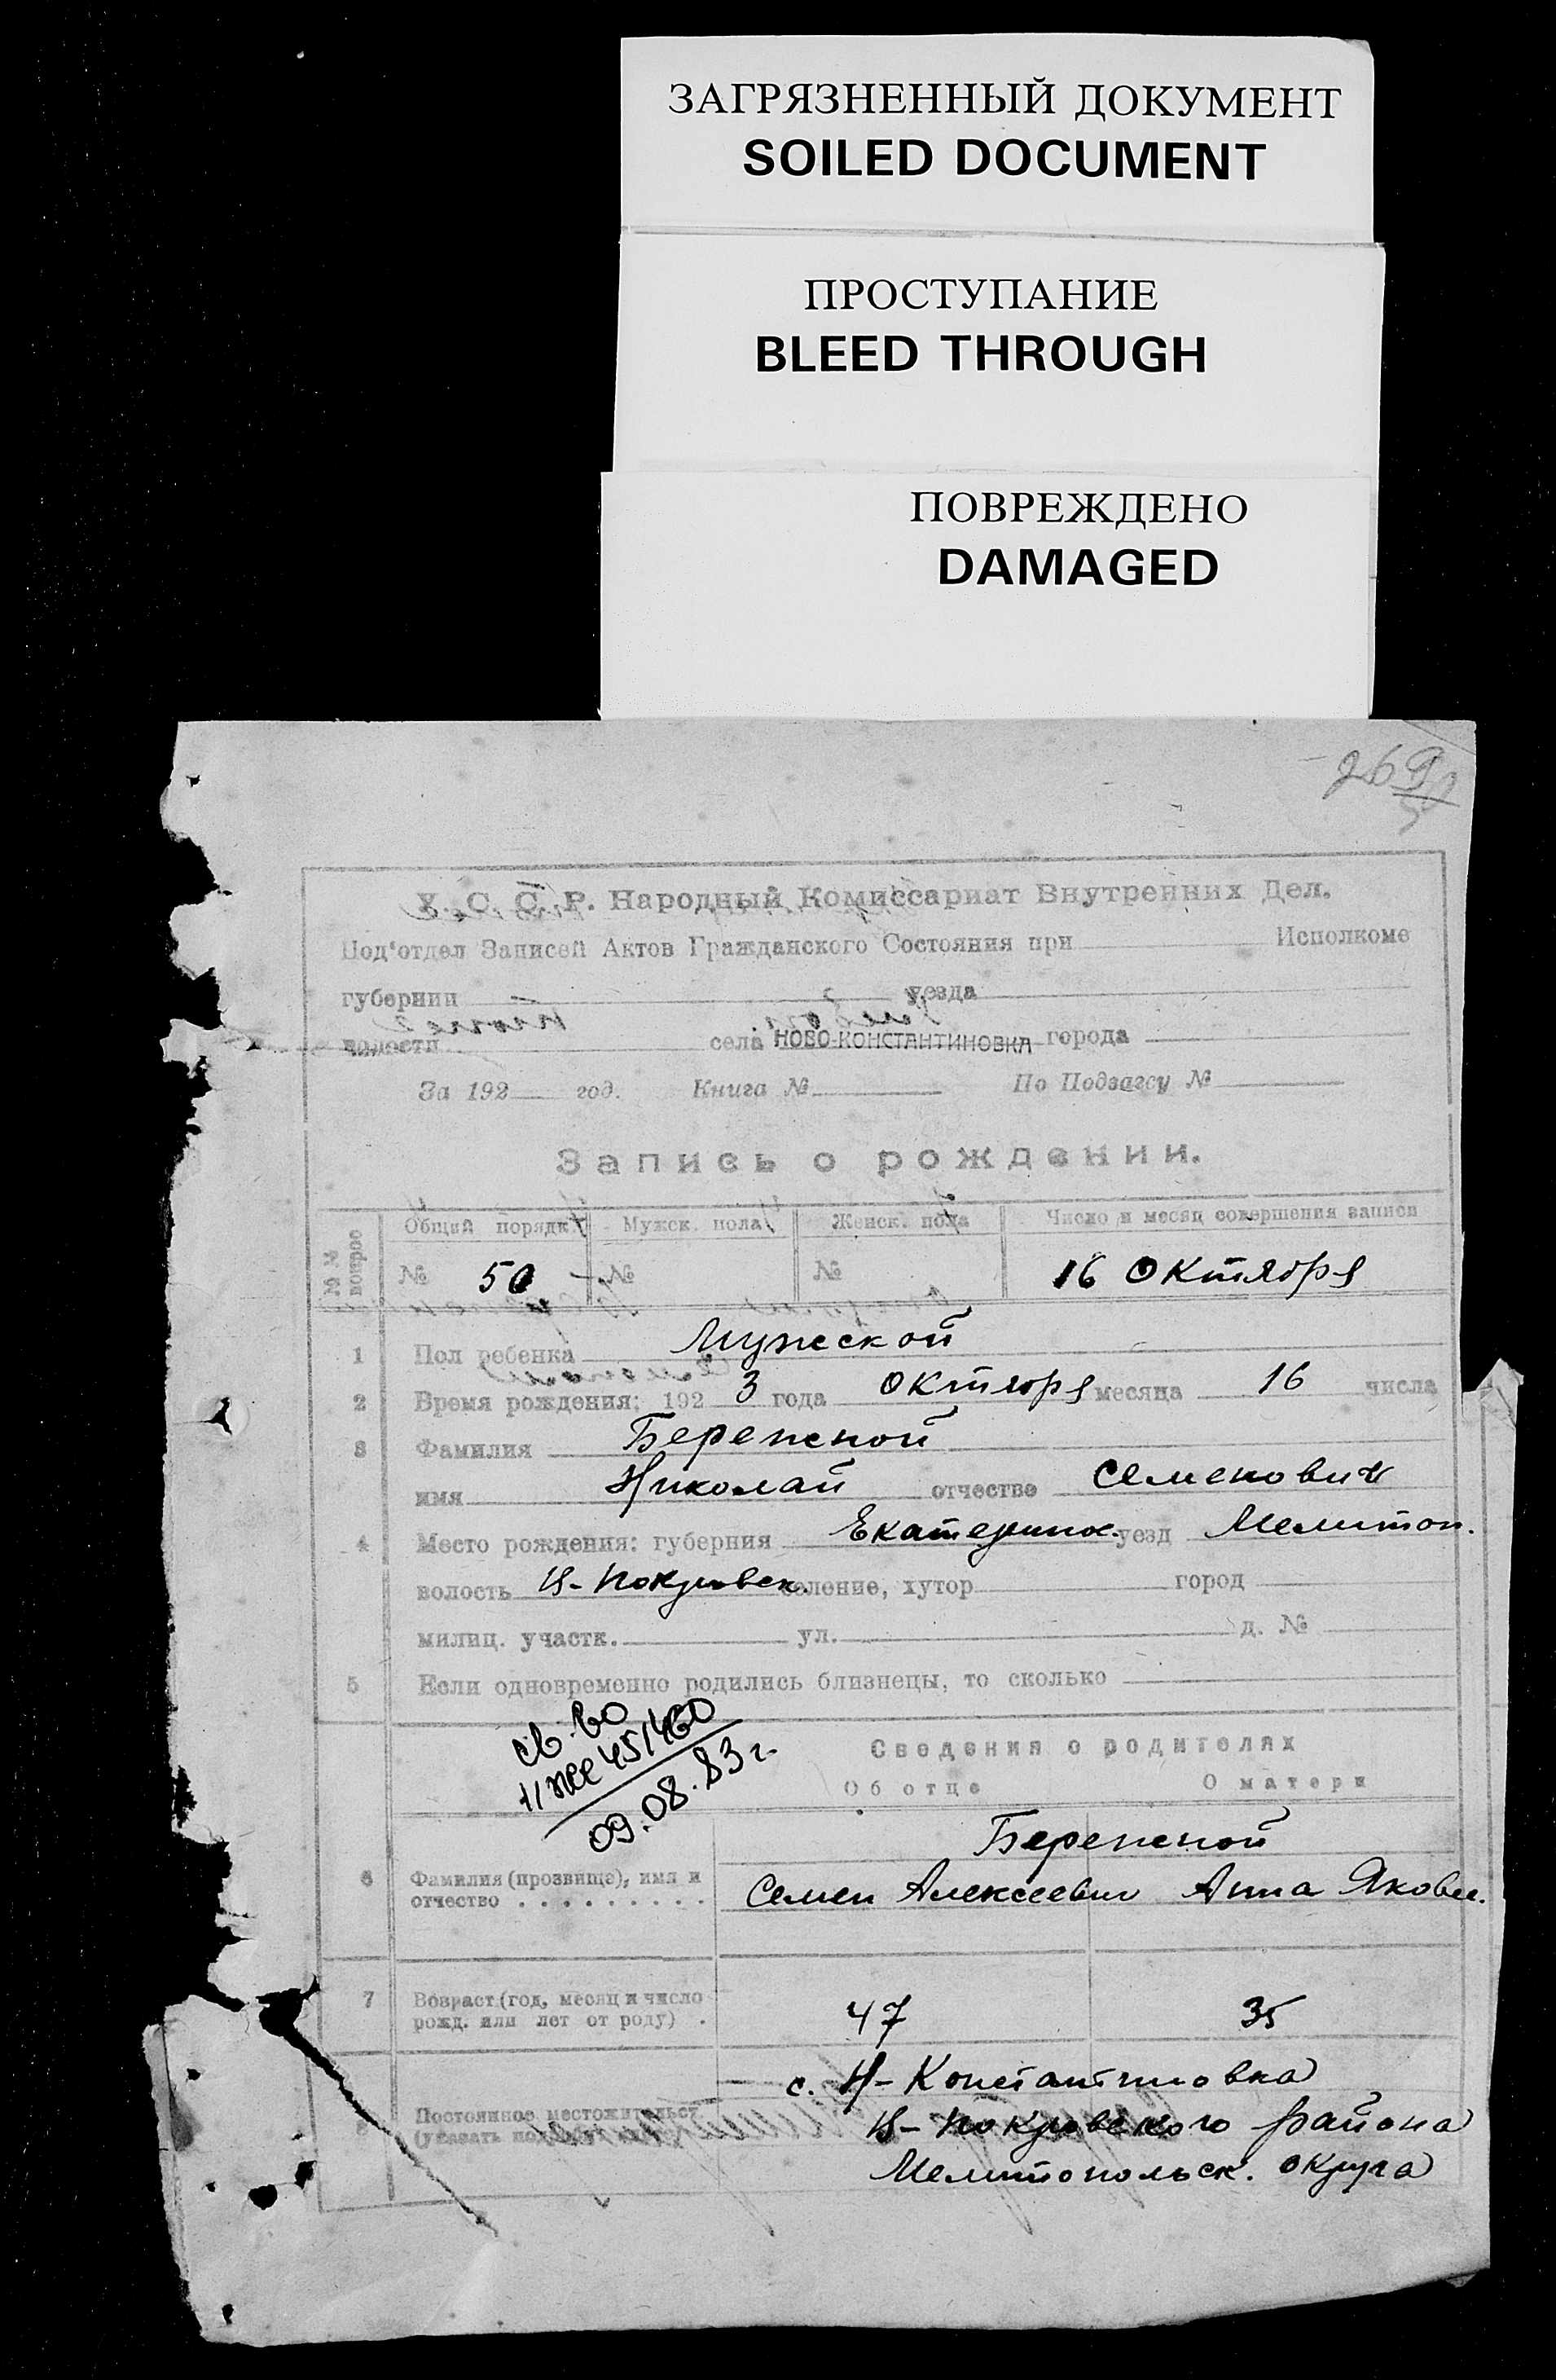 ЗАГРЯЗНЕННЫЙ ДОКУМЕНТ
SOILED DOCUMENT
ПРОСТУПАНИЕ
BLEED THROUGH
ПОВРЕЖДЕНО
DAMAGED
У. С. С. Р. Народный Комиссариат Внутренних Дел.
Под'отдел Записей Актов Гражданского Состояния при Исполкоме
губернии уезда
волости села НОВО-КОНСТАНТИНОВКА города
За 192 год. Книга № По Подзагсу №
Запись о рождении.
№№ вопрос Общий порядк Мужск. пола Женск. пола Число и месяц совершения записи
№ 50 № № 16 Октября
1 Пол ребенка Мужской
2 Время рождения: 1923 года октября месяца 16 числа
3 Фамилия Бережной
имя Николай отчество Семенович
4 Место рождения: губерния Екатеринос. уезд Мелитоп.
волость Н-Покровск. селение, хутор город
милиц. участк. ул. д. №
5 Если одновременно родились близнецы, то сколько
св-во
45/460
09.08.83 г.
Сведения о родителях
Об отце О матери
Бережной
6 Фамилия (прозвище), имя и
отчество . . . . . . . . . Семен Алексеевич Анна Яковл.
7 Возраст (год, месяц и число
рожд. или лет от роду) . 47 35
с. Н-Константиновка
8 Постоянное местожительст
(указать Н-Покровского района
Мелитопольск. округа